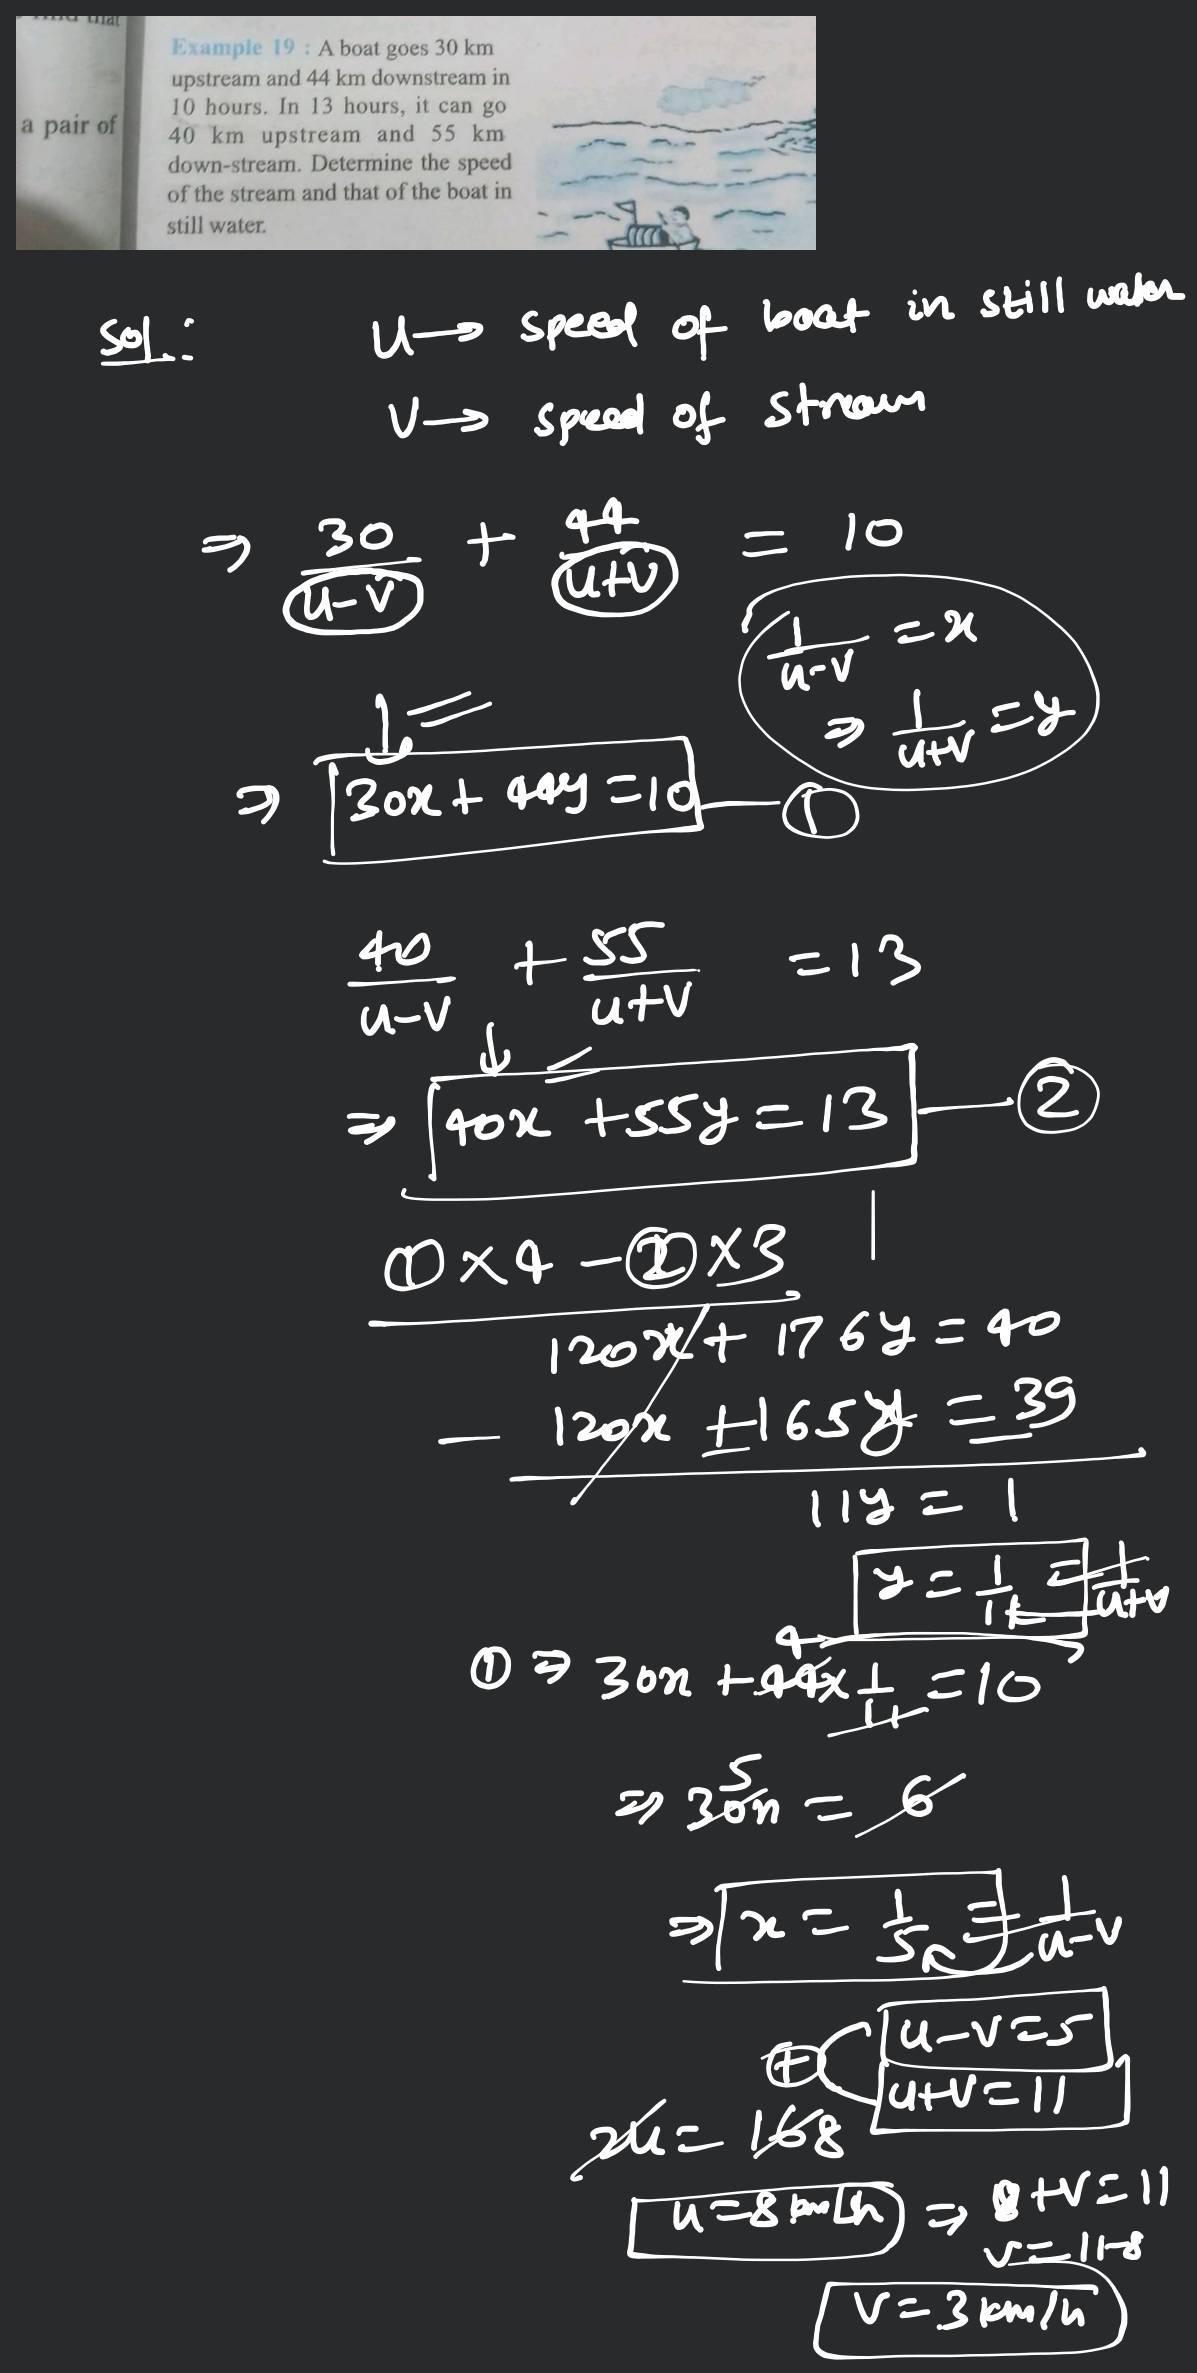 a pair of
Example 19 : A boat goes 30 km
upstream and 44 km downstream in
10 hours. In 13 hours, it can go
40 km upstream and 55 km
down-stream. Determine the speed
of the stream and that of the boat in
still water.
Sol.: u → speed of boat in still water
v → speed of stream
⇒ 30/(u-v) + 44/(u+v) = 10
1/(u-v) = x
⇒ 1/(u+v) = y
⇒ 30x + 44y = 10 — ①
40/(u-v) + 55/(u+v) = 13
⇒ 40x + 55y = 13 — ②
① × 4 - ② × 3
120x + 176y = 40
- 120x + 165y = 39
11y = 1
y = 1/11 = 1/(u+v)
① ⇒ 30x + 44 × 1/11 = 10
4
⇒ 30x = 6
5
⇒ x = 1/5 = 1/(u-v)
u-v=5
⊕
u+v=11
2u = 16 8
u = 8 km/h ⇒ 8+v=11
v=11-8
v = 3 km/h